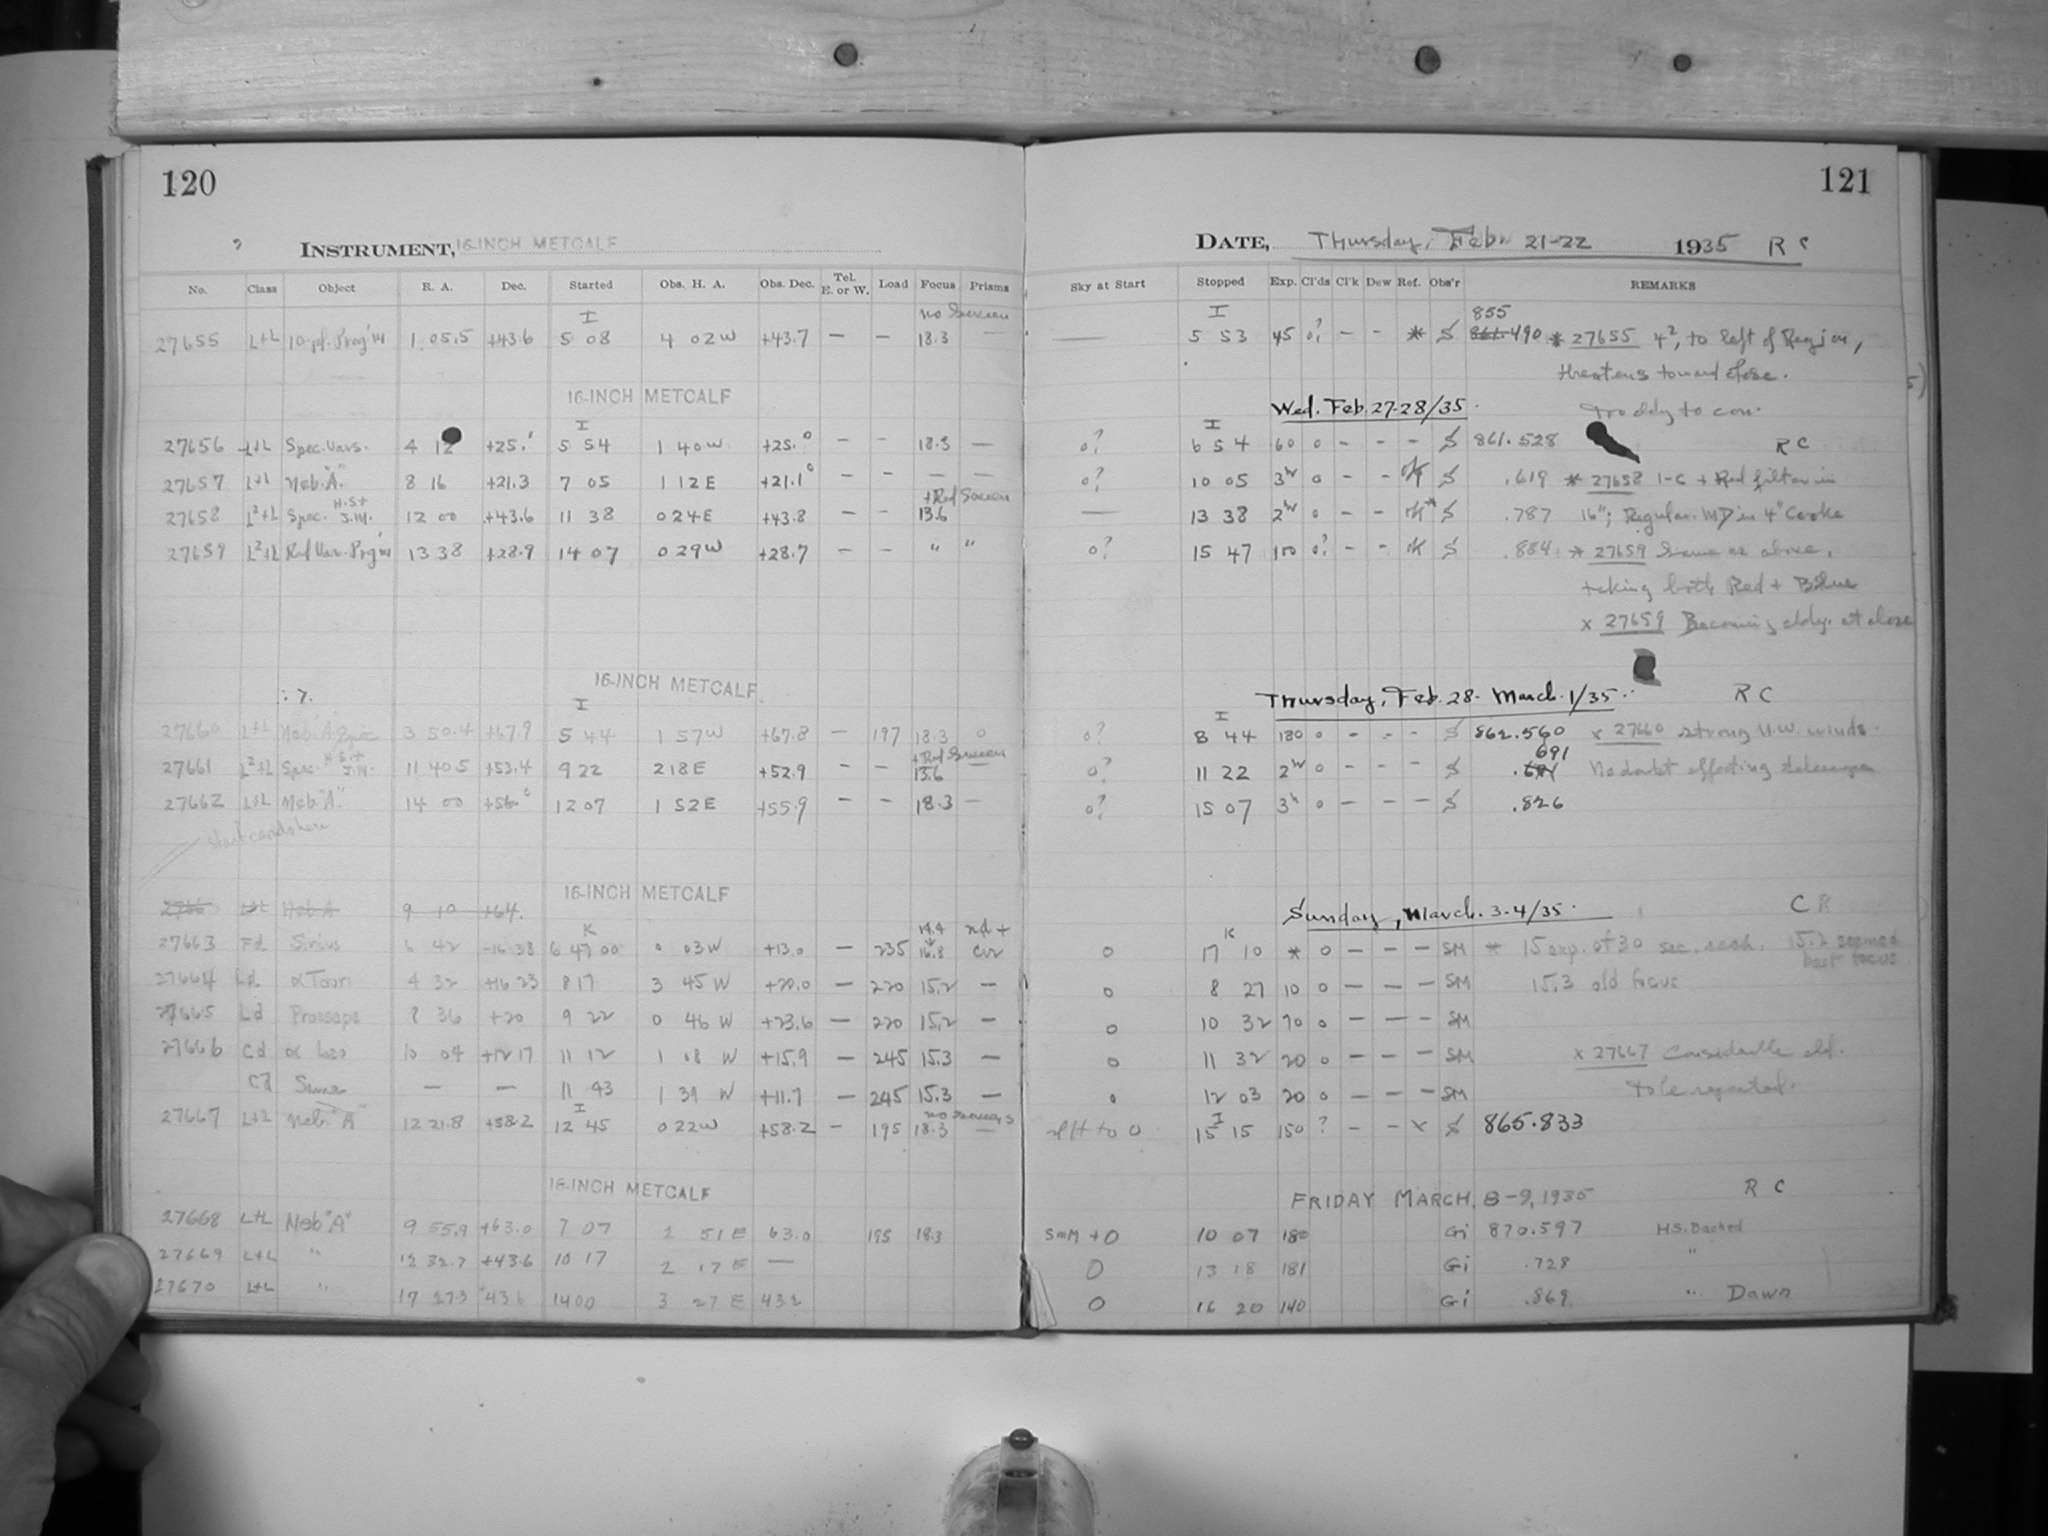 120
121
INSTRUMENT, 16-INCH METCALF
DATE, Thursday, Feb. 21-22 1935 R C
No. Class Object R. A. Dec. Started Obs. H. A. Obs. Dec. Tel. E. or W. Load Focus Prisms Sky at Start Stopped Exp. Cl'ds Cl'k Dew Ref. Obs'r REMARKS
I no Screen I 855
27655 L+L 10-yf. Prog'm 1 05.5 +43.6 5 08 4 02 W +43.7 — — 18.3 — — 5 53 45 0? - - * S 861.490 * 27655 4², to left of Region,
threatens toward close.
16-INCH METCALF Wed. Feb. 27-28/35 Too cldy to con.
I I
27656 L+L Spec. Vars. 4 12 +25.° 5 54 1 40 W +25.° - - 18.3 — 0? 6 54 60 0 - - - S 861.528 R C
27657 L+L Neb. "A." 8 16 +21.3 7 05 1 12 E +21.1° - - — — 0? 10 05 3h 0 - - ok S .619 * 27658 1-C + Red filter in
H.S.+ +Red Screen
27658 L²+L Spec. J.M. 12 00 +43.6 11 38 0 24 E +43.8 - - 13.6 — 13 38 2h 0 - - ok* S .787 16"; Regular MD in 4" Cooke
27659 L²+L Red Var. Prg'm 13 38 +28.9 14 07 0 29 W +28.7 - - " " 0? 15 47 100 0? - - ok S .884 * 27659 Same as above,
taking both Red + Blue
x 27659 Becoming cldy. at close
16-INCH METCALF Thursday, Feb. 28 - March 1/35 R C
I I
27660 L+L Neb. "A" 3 50.4 +67.9 5 44 1 57 W +67.8 - 197 18.3 0 0? 8 44 180 0 - - - S 862.560 x 27660 strong N.W. winds.
H.S.+ +Red Screen 691
27661 L²+L Spec. J.M. 11 40.5 +53.4 9 22 2 18 E +52.9 - - 13.6 — 0? 11 22 2h 0 - - - S No doubt effecting telescope
27662 L+L Neb. "A." 14 00 +56.° 12 07 1 52 E +55.9 - - 18.3 — 0? 15 07 3h 0 - - - S .826
start cards here
16-INCH METCALF Sunday, March. 3-4/35. C R
2766 L+L Neb A 9 10 +64.
K 14.4 nd + K
27663 Fd Sirius 6 42 -16 38 6 47 00 0 03 W +13.0 - 235 16.8 cor 0 17 10 * 0 - - - SM * 15 exp. of 30 sec. each. 15.2 seemed
best focus
27664 Ld α Tauri 4 32 +16 23 8 17 3 45 W +20.0 - 220 15.2 - 0 8 27 10 0 - - - SM 15.3 old focus
27665 Ld Praesepe 8 36 +20 9 22 0 46 W +23.6 - 220 15.2 - 0 10 32 70 0 - - - SM
27666 Cd α Leo 10 04 +12 17 11 12 1 18 W +15.9 - 245 15.3 - 0 11 32 20 0 - - - SM x 27667 Considerable cld.
Cd Same — — 11 43 1 39 W +11.7 - 245 15.3 - 0 12 03 20 0 - - - SM To be repeated.
I no Screens I
27667 L+L Neb. "A" 12 21.8 +58.2 12 45 0 22 W +58.2 - 195 18.3 — to 0 15 15 150 ? - - x S 865.833
16-INCH METCALF FRIDAY MARCH, 8-9, 1935 R C
27668 L+L Neb "A" 9 55.9 +63.0 7 07 2 51 E 63.0 195 18.3 S=M + 0 10 07 180 Gi 870.597 HS. Backed
27669 L+L " 12 32.7 +43.6 10 17 2 17 E — 0 13 18 181 Gi .728 "
27670 L+L " 17 27.3 +43.6 14 00 3 27 E 43.2 0 16 20 140 Gi .869 " Dawn